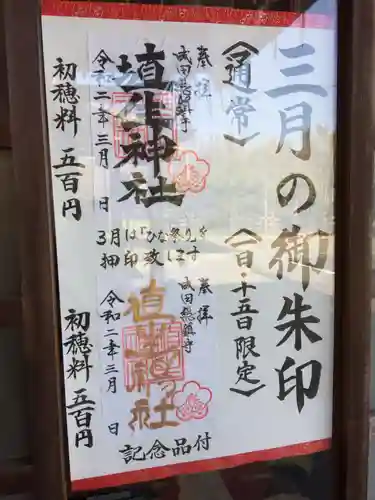 三月の御朱印
《通常》
奉拝
成田総鎮守
埴生神社
令和二年三月　日
初穂料　五百円
3月は「ひな祭り」を
押印致します
《一日・十五日限定》
奉拝
成田総鎮守
埴生神社
令和二年三月　日
記念品付
初穂料　五百円